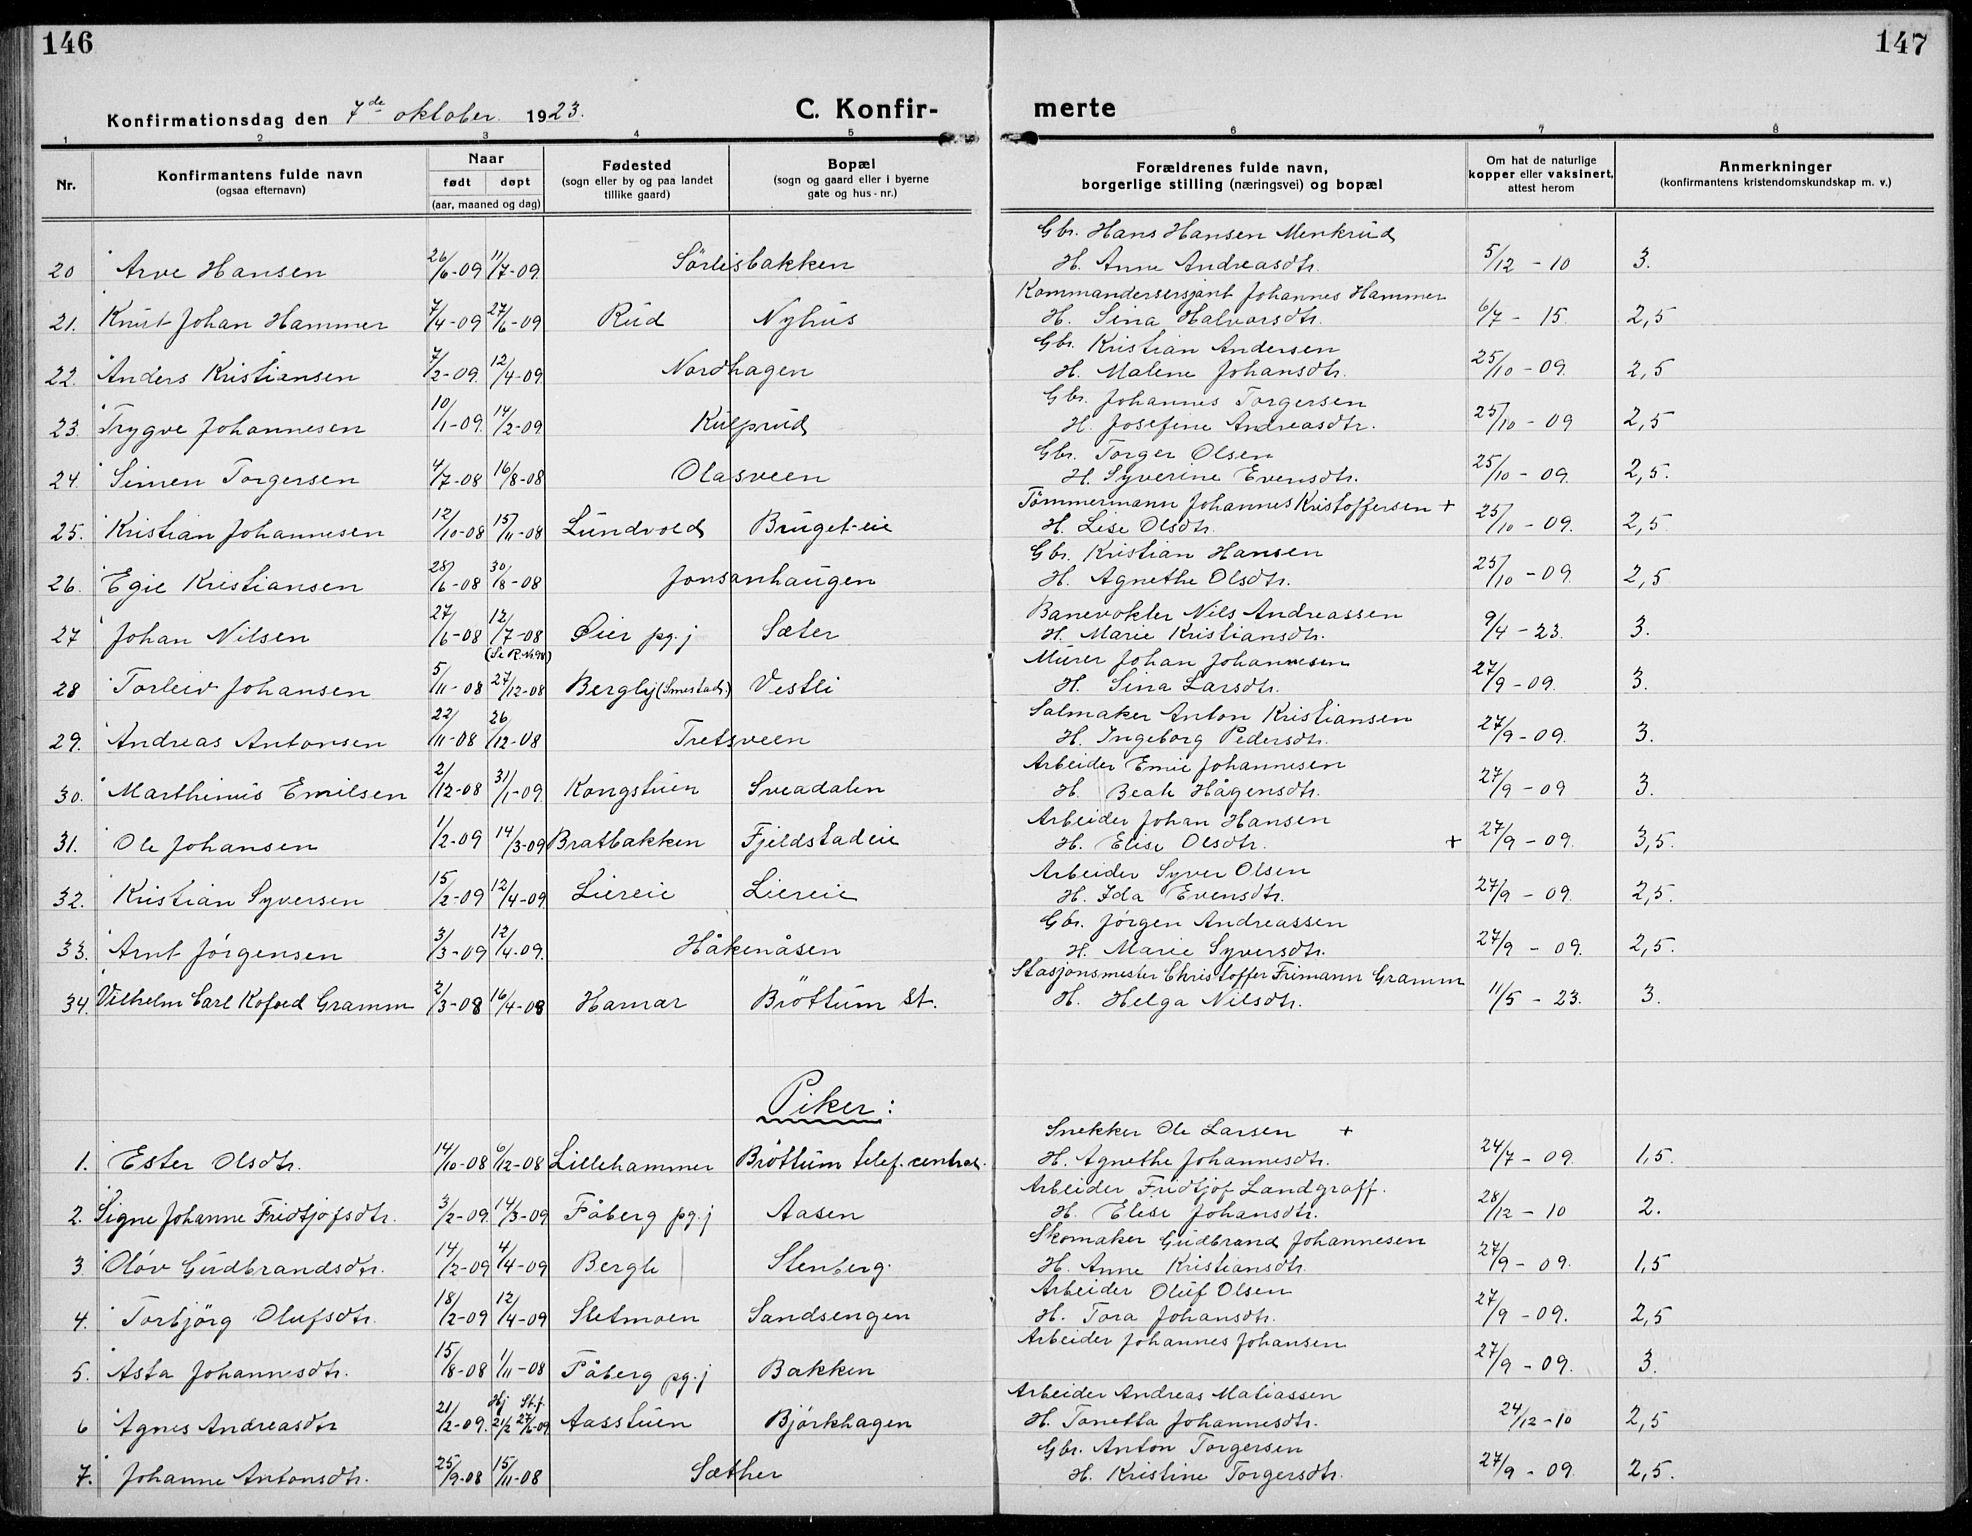 146
147
Konfirmationsdag den 7de oktober 1923.
C. Konfir-
merte
1 2 3 4 5 6 7 8
Nr.
Konfirmantens fulde navn
(ogsaa efternavn)
Naar
født døpt
(aar, maaned og dag)
Fødested
(sogn eller by og paa landet
tillike gaard)
Bopæl
(sogn og gaard eller i byerne
gate og hus-nr.)
Forældrenes fulde navn,
borgerlige stilling (næringsvei) og bopæl
Om hat de naturlige
kopper eller vaksinert,
attest herom
Anmerkninger
(konfirmantens kristendomskundskap m. v.)
Gbr. Hans Hansen Menkrud
20 Arve Hansen 26/6-09 11/7-09 Sørlisbakken H. Anne Andreasdtr. 5/12 - 10 3.
Kommandersersjant Johannes Hammer
21. Knut Johan Hammer 7/4-09 27/6-09 Rud Nyhus H. Sina Halvorsdtr. 6/7 - 15 2,5
Gbr. Kristian Andersen
22. Anders Kristiansen 7/2-09. 12/4-09 Nordhagen H. Malene Johansdtr. 25/10 - 09. 2,5
Gbr. Johannes Torgersen
23. Trygve Johannesen 10/1-09. 14/2-09 Kulprud H. Josefine Andreasdtr. 25/10 - 09 2,5
Gbr. Torger Olsen
24. Simen Torgersen 4/7-08 16/8-08 Olasveen H. Syverine Evensdtr. 25/10 - 09. 2,5.
Tömmermann Johannes Kristoffersen +
25. Kristian Johannesen 12/10-08 15/11-08 Lundvold Bruget-eie H. Lise Olsdtr. 25/10 - 09. 2,5
Gbr. Kristian Hansen
26. Egil Kristiansen 28/6-08 30/8-08 Jonsanhaugen H. Agnethe Olsdtr. 25/10 - 09. 2,5
Banevokter Nils Andreassen
27 Johan Nilsen 27/6-08 12/7-08 Øier pg.j Sæter H. Marie Kristiansdtr. 9/4 - 23. 3.
Murer Johan Johannesen
28 Torleiv Johansen 5/11-08 27/12-08 Bergly (Smestad.) Vestli H. Sina Larsdtr. 27/9 - 09. 3.
Salmaker Anton Kristiansen
29. Andreas Antonsen 22/11-08 26/12-08 Tretsveen H. Ingeborg Pedersdtr. 27/9 - 09. 3.
Arbeider Emil Johannesen
30. Marthinus Emilsen 2/12-08 31/1-09. Kongstuen Sveadalen H. Beate Hågensdtr. 27/9 - 09 3.
Arbeider Johan Hansen
31. Ole Johansen 1/2-09 14/3-09 Bratbakken Fjeldstadeie H. Elise Olsdtr. + 27/9 - 09. 3,5.
Arbeider Syver Olsen
32. Kristian Syversen 15/2-09 12/4-09. Liereie Liereie H. Ida Evensdtr. 27/9 - 09. 2,5.
Gbr. Jörgen Andreassen
33. Arnt Jörgensen 3/3-09 12/4-09. Håkenåsen H. Marie Syversdtr. 27/9 - 09. 2,5.
Stasjonsmester Christoffer Frimann Gramm
34. Vilhelm Carl Kofoed Gramm 2/3-08 16/4-08 Hamar Bröttum st. H. Helga Nilsdtr. 11/5 - 23. 3.
Piker:
Snekker Ole Larsen +
1. Ester Olsdtr. 14/10-08 6/12-08 Lillehammer Bröttum telef. central. H. Agnethe Johannesdtr. 24/7 - 09. 1,5.
Arbeider Fridtjof Landgraff.
2. Signe Johanne Fridtjofsdtr. 3/2-09. 14/3-09 Fåberg pg.j Aasen H. Elise Johansdtr. 28/12 - 10 2.
Skomaker Gudbrand Johannesen
3 Olöv Gudbrandsdtr. 14/2-09 4/4-09 Bergli Stenberg. H. Anne Kristiansdtr. 27/9 - 09. 1,5
Arbeider Oluf Olsen
4. Torbjörg Olufsdtr. 18/2-09 12/4-09 Sletmoen Sandsengen H. Tora Johansdtr. 27/9 - 09. 2,5
Arbeider Johannes Johansen
5. Asta Johannesdtr. 15/8-08 1/11-08 Fåberg pg.j Bakken 27/9 - 09. 3.
Arbeider Andreas Matiassen
6 Agnes Andreasdtr 21/2-09. Hj 21/2 St.f. 27/6-09 Aasstuen Bjórkhagen H. Tonetta Johannesdtr. 24/12-10 2,5
Gbr. Anton Torgersen
7. Johanne Antonsdtr. 25/9-08 15/11-08 Sæther H. Kristine Torgersdtr. 27/9 - 09. 2,5.